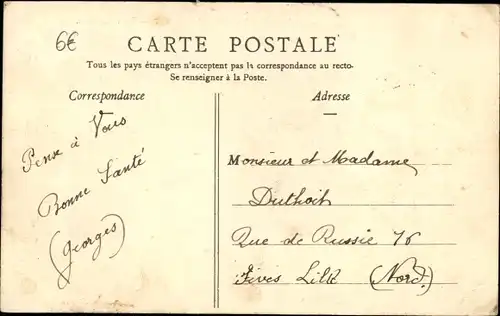 6€
CARTE POSTALE
Tous les pays étrangers n'acceptent pas la correspondance au recto.
Se renseigner à la Poste.
Correspondance
Adresse
Pense à Vous
Bonne Santé
(Georges)
Monsieur et Madame
Duthoit
Rue de Russie 76
Fives Lille (Nord.)